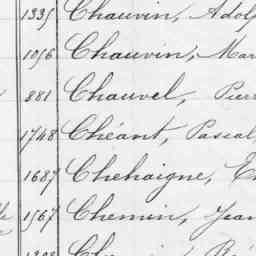 1335 Chauvin, Adol
1096 Chauvin, Mar
881 Chauvel, Pier
1748 Chéant, Pascal
1687 Chehaigne, E
1567 Chemin, Jean